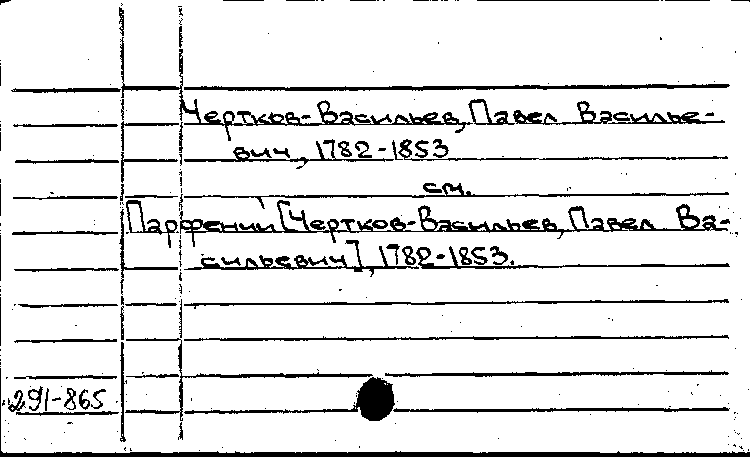 Чертков-Васильев, Павел Василье-
вич, 1782-1853
см.
Парфений [Чертков-Васильев, Павел Ва-
сильевич], 1782-1853.
291-865